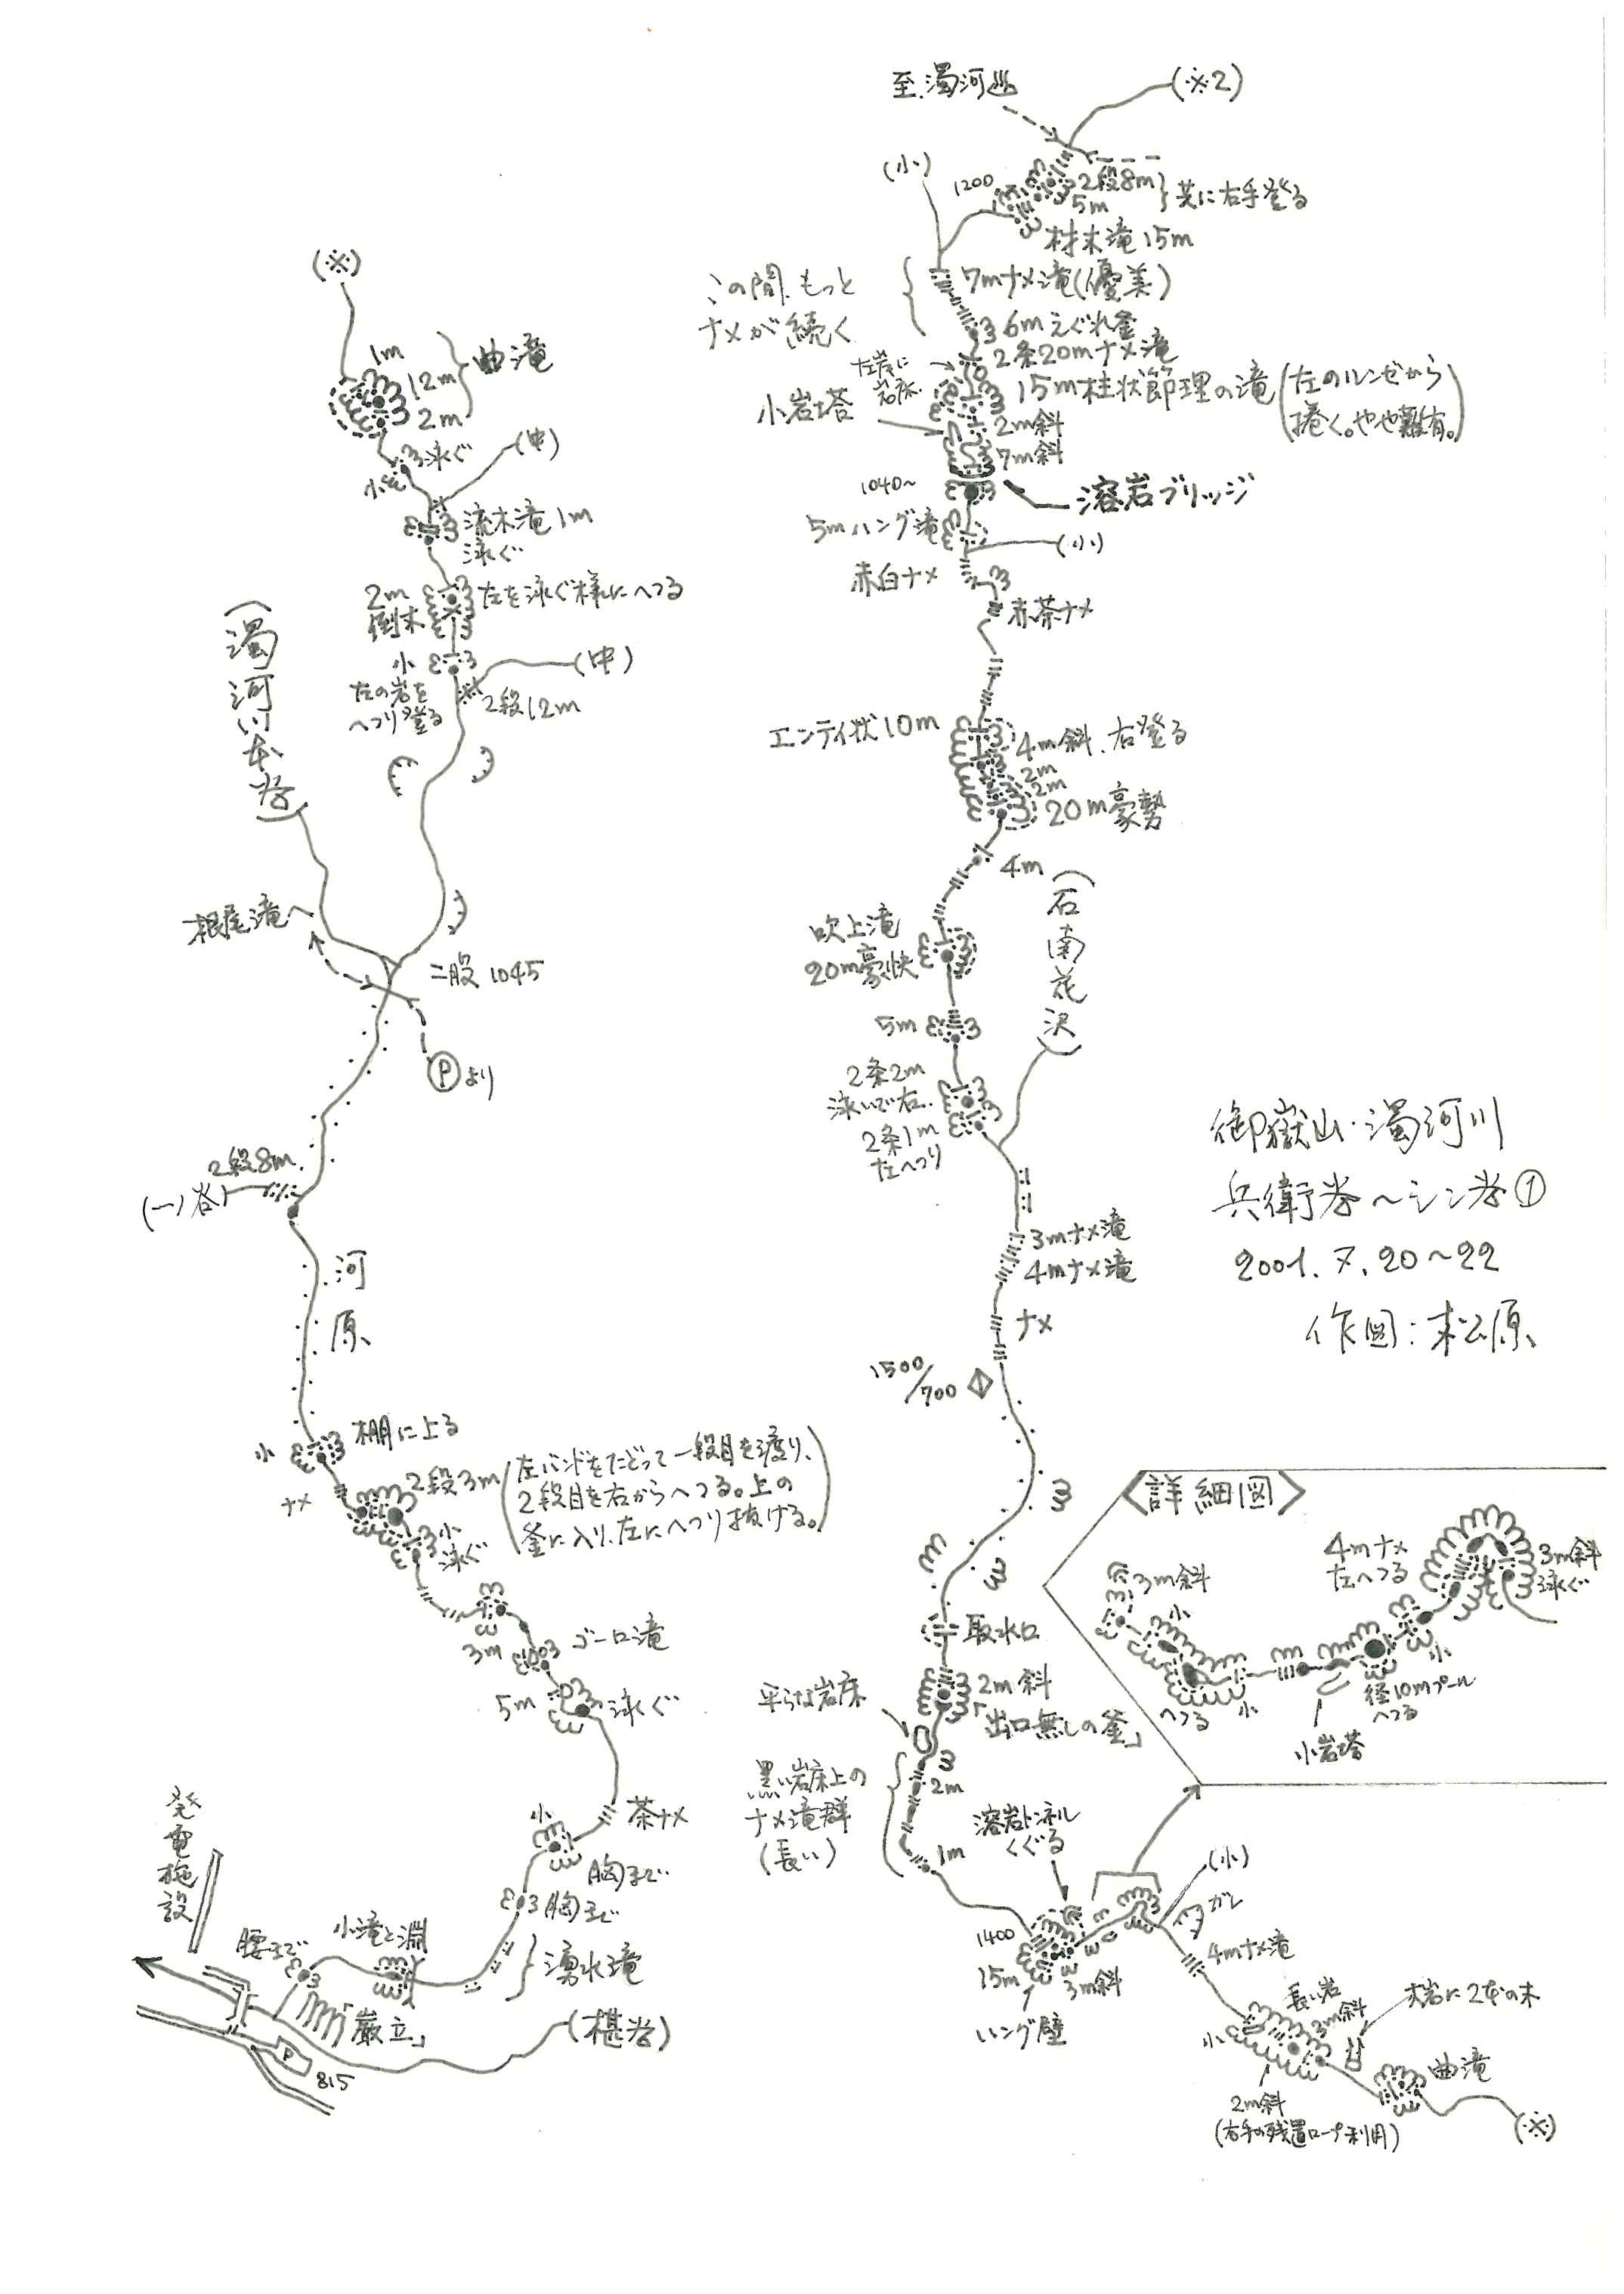 至濁河♨
(※2)
(小)
1200
2段8m
5m
共に右手登る
材木滝15m
この間、もっと
ナメが続く
7mナメ滝(優美)
6mえぐれ釜
2条20mナメ滝
左岸に
岩床
小岩塔
15m柱状節理の滝
(左のルンゼから
捲く。やや難有。)
2m斜
7m斜
1040~
溶岩ブリッジ
5mハング滝
(小)
赤白ナメ
赤茶ナメ
エンテイ状10m
4m斜、右登る
2m
2m
20m豪勢
4m
(石南花沢)
吹上滝
20m豪快
5m
2条2m
泳いで右、
2条1m
左へつり
3mナメ滝
4mナメ滝
ナメ
1500/700
取水口
2m斜
「出口無しの釜」
平らな岩床
2m
黒い岩床上の
ナメ滝群
(長い)
1m
溶岩トンネル
くぐる
1400
15m
3m斜
ハング壁
(小)
ガレ
4mナメ滝
長い岩
3m斜
大岩に2本の木
小
2m斜
(右手の残置ロープ利用)
曲滝
(※)
御嶽山・濁河川
兵衛谷~シン谷①
2001.7.20~22
作図:松原
<詳細図>
3m斜
小
へつる
小
小岩塔
径10mプール
へつる
小
4mナメ
左へつる
3m斜
泳ぐ
(※)
1m
12m
2m
曲滝
泳ぐ
小
(中)
流木滝1m
泳ぐ
2m
倒木
左を泳ぐ様にへつる
小
左の岩を
へつり登る
(中)
2段12m
(濁河川本谷)
根尾滝
二股1045
Ⓟより
2段8m
(一ノ谷)
河原
小
棚に上る
ナメ
2段3m
(左バンドをたどって一段目を渡り、
2段目を右からへつる。上の
釜に入り、左にへつり抜ける。)
小
泳ぐ
3m
ゴーロ滝
5m
泳ぐ
茶ナメ
小
胸まで
胸まで
湧水滝
小滝と淵
腰まで
発電施設
「巌立」
(椹谷)
P
815